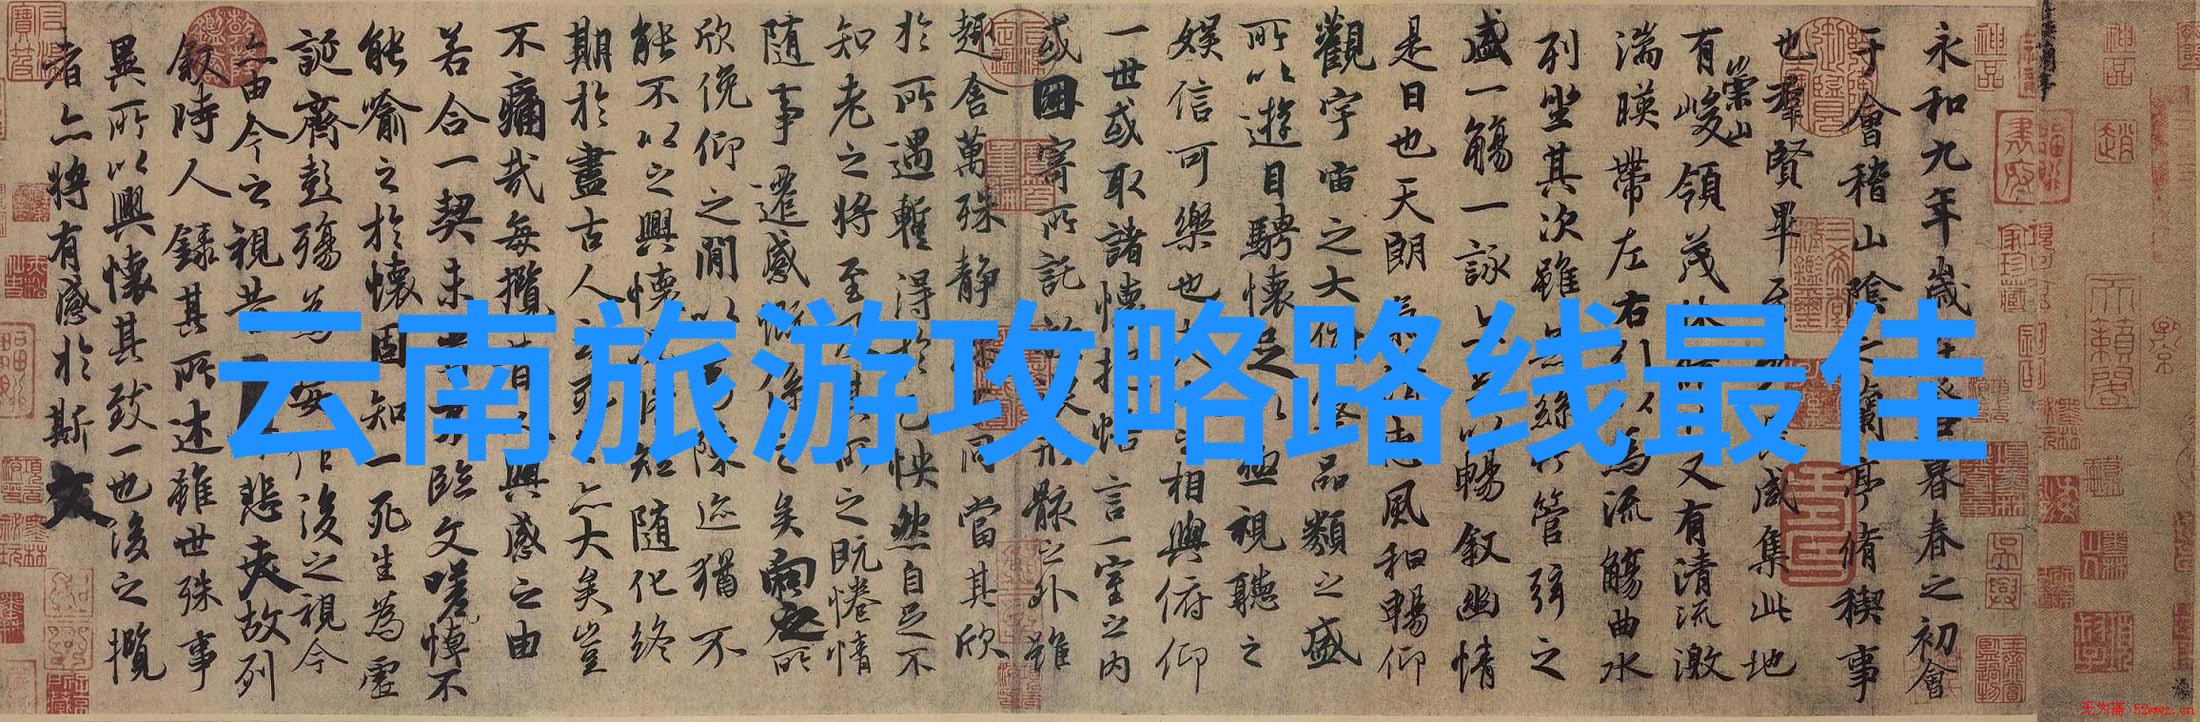 云南旅游攻略路线最佳
永和九年歲在癸丑暮春之初會
于會稽山陰之蘭亭脩稧事
也羣賢畢至少長咸集此地
有崇山峻領茂林又有清流激
湍暎帶左右引以為流觴曲水
列坐其次雖無絲竹管弦之
盛一觴一詠亦足以暢敘幽情
是日也天朗氣清惠風和暢仰
觀宇宙之大俯察品類之盛
所以遊目騁懷足以極視聽之
娛信可樂也夫人之相與俯仰
一世或取諸懷抱悟言一室之内
或因寄所託放浪形骸之外雖
趣舍萬殊静躁不同當其欣
於所遇暫得於己怏然自足不
知老之將至及其所之既惓情
隨事遷感慨係之矣向之所
欣俛仰之閒以為陳迹猶不
能不以之興懷況脩短隨化終
期於盡古人云死生亦大矣豈
不痛哉每攬昔人興感之由
若合一契未嘗不臨文嗟悼不
能喻之於懷固知一死生為虛
誕齊彭殤為妄作後之視今
亦由今之視昔悲夫故列
叙時人錄其所述雖世殊事
異所以興懷其致一也後之攬
者亦將有感於斯文